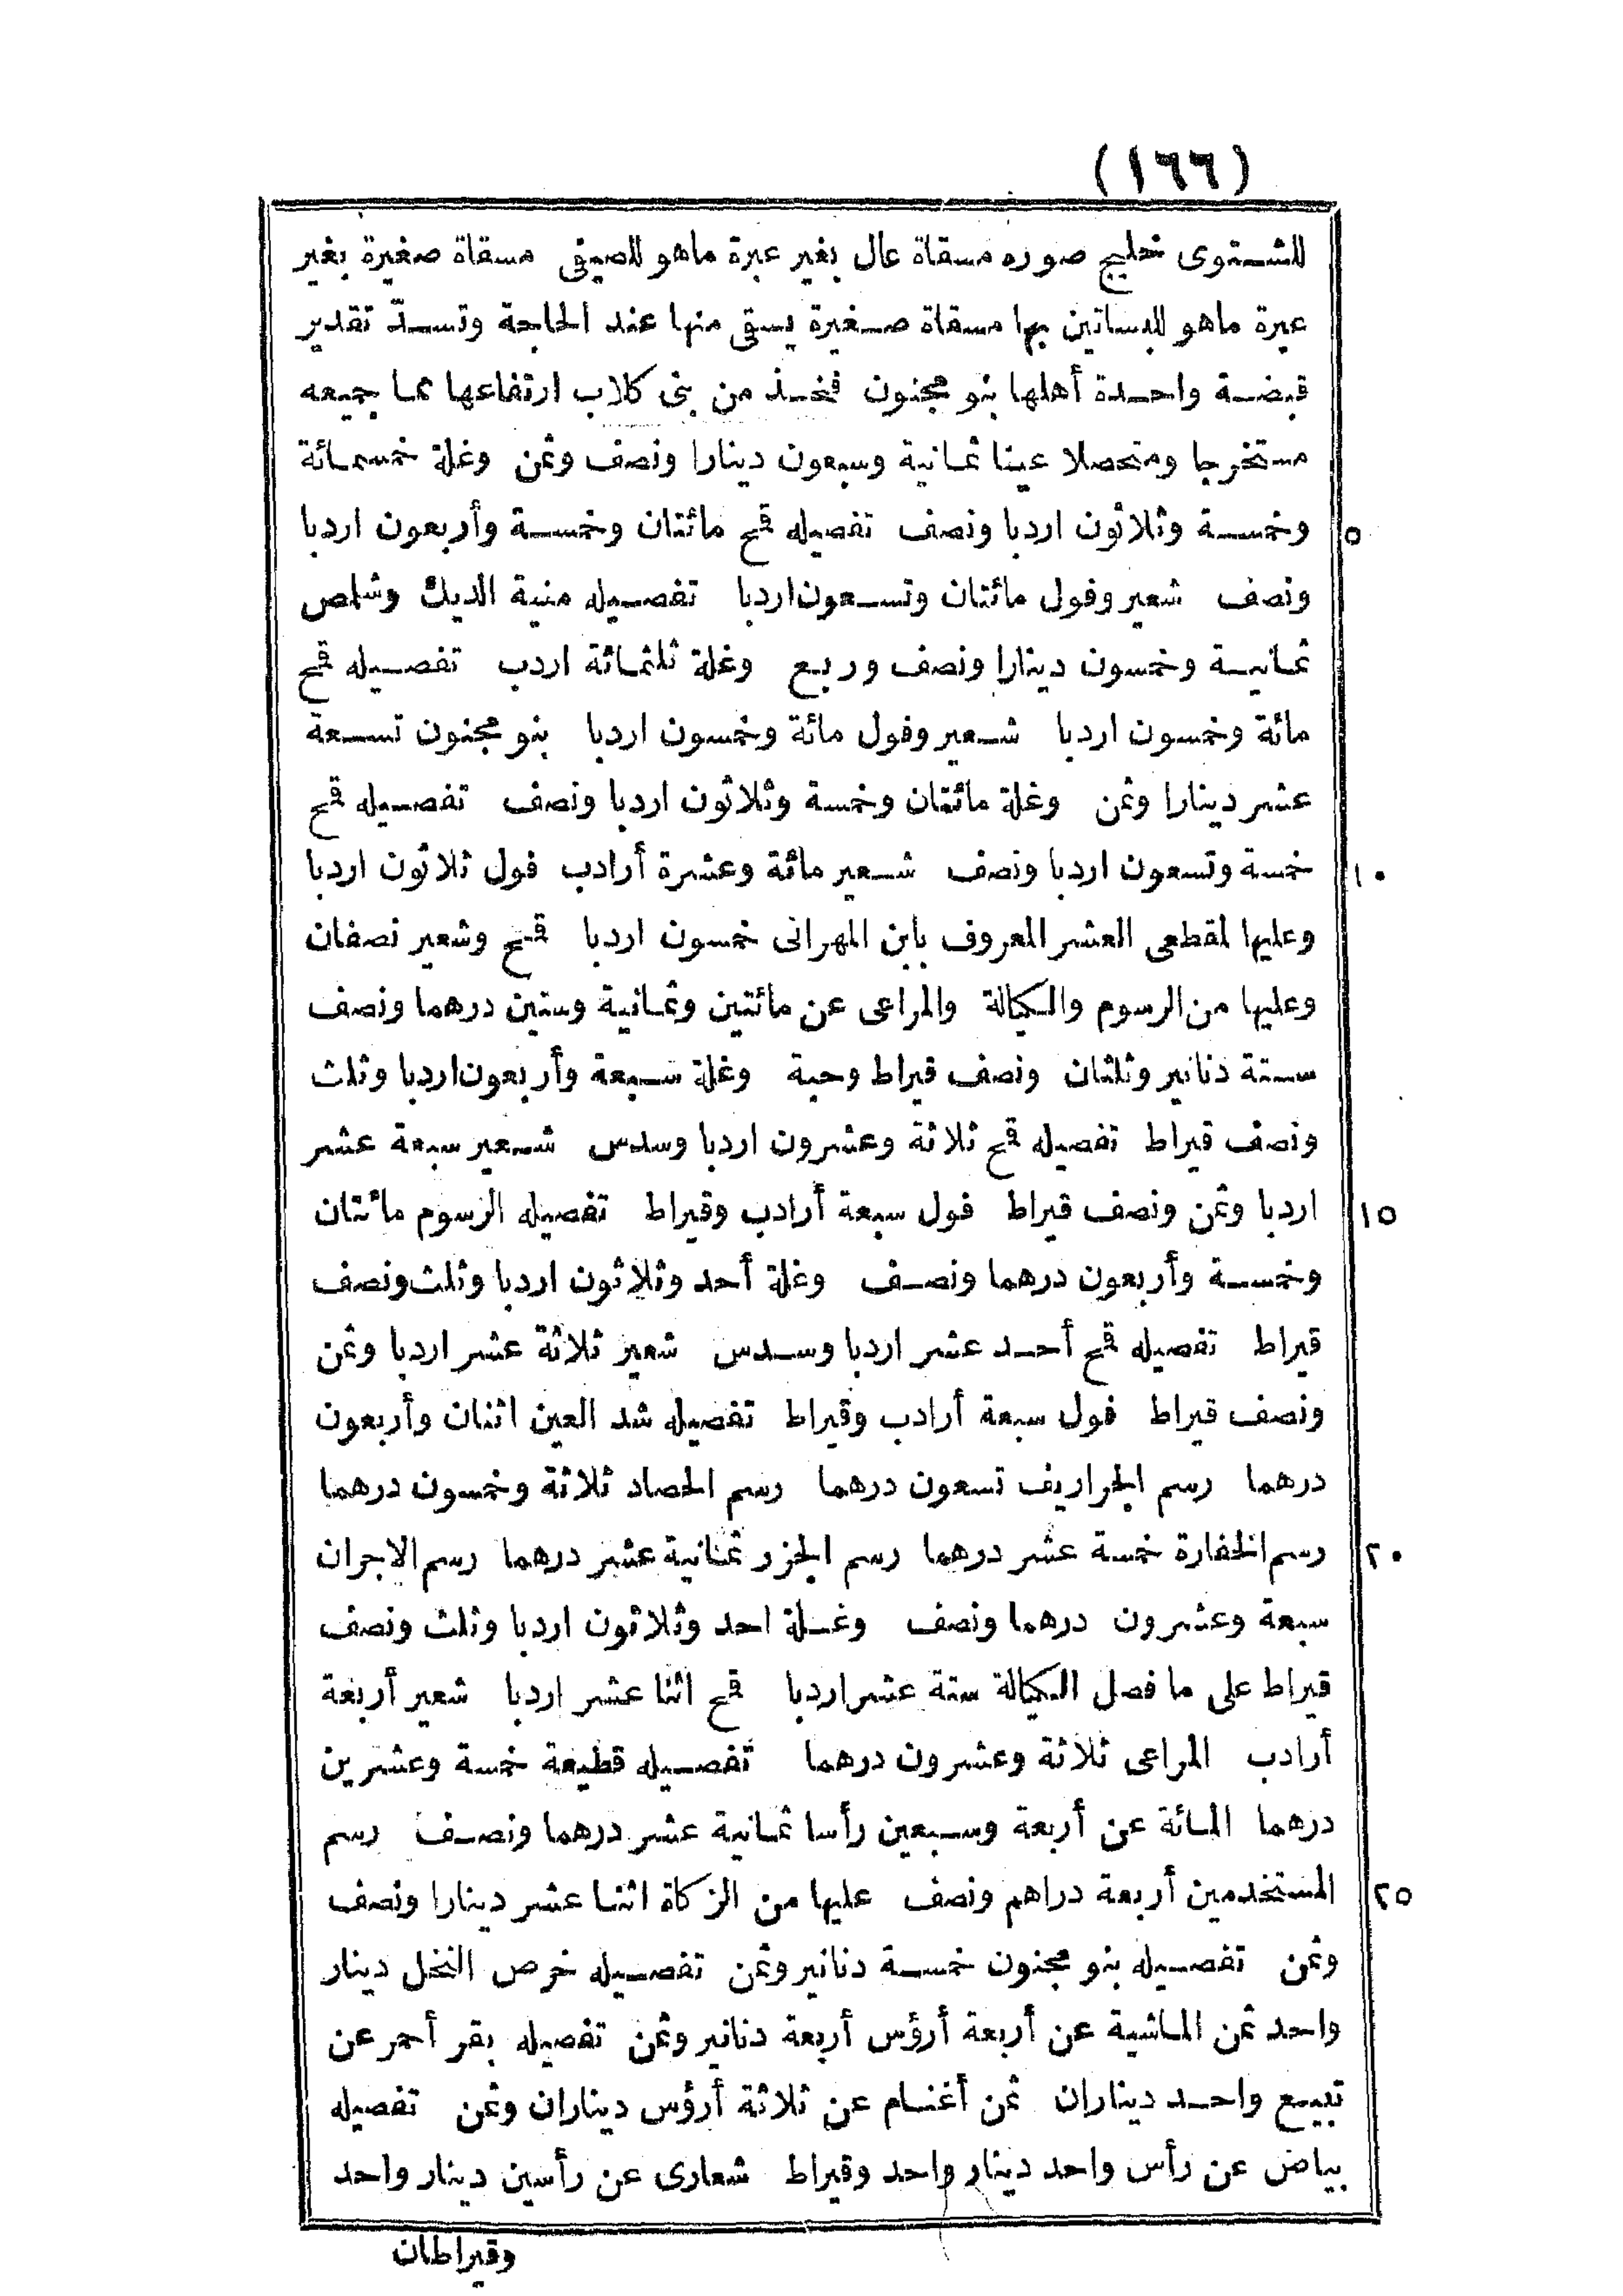 (١٦٦)
للشتوى خليج صوره مسقاة عال بغير عبرة ماهو للصيفى مسقاة صغيرة بغير
عبرة ماهو للبساتين بها مسقاة صغيرة يسقى منها عند الحاجة وتسدّ تقدير
قبضة واحدة أهلها بنو مجنون فخذ من بنى كلاب ارتفاعها مما جميعه
مستخرجا ومتحصلا عينا ثمانية وسبعون دينارا ونصف وثمن وغلة خمسمائة
وخمسة وثلاثون اردبا ونصف تفصيله قمح مائتان وخمسة وأربعون اردبا ٥
ونصف شعير وفول مائتان وتسعون اردبا تفصيله منية الديك وشلمص
ثمانية وخمسون دينارا ونصف وربع وغلة ثلثمائة اردب تفصيله قمح
مائة وخمسون اردبا شعير وفول مائة وخمسون اردبا بنو مجنون تسعة
عشر دينارا وثمن وغلة مائتان وخمسة وثلاثون اردبا ونصف تفصيله قمح
خمسة وتسعون اردبا ونصف شعير مائة وعشرة أرادب فول ثلاثون اردبا ١٠
وعليها لمقطعى العشر المعروف بابن المهرانى خمسون اردبا قمح وشعير نصفان
وعليها من الرسوم والكيالة والمراعى عن مائتين وثمانية وستين درهما ونصف
ستة دنانير وثلثان ونصف قيراط وحبة وغلة سبعة وأربعون اردبا وثلث
ونصف قيراط تفصيله قمح ثلاثة وعشرون اردبا وسدس شعير سبعة عشر
اردبا وثمن ونصف قيراط فول سبعة أرادب وقيراط تفصيله الرسوم مائتان ١٥
وخمسة وأربعون درهما ونصف وغلة أحد وثلاثون اردبا وثلث ونصف
قيراط تفصيله قمح أحد عشر اردبا وسدس شعير ثلاثة عشر اردبا وثمن
ونصف قيراط فول سبعة أرادب وقيراط تفصيله شد العين اثنان وأربعون
درهما رسم الجراريف تسعون درهما رسم الحصاد ثلاثة وخمسون درهما
رسم الخفارة خمسة عشر درهما رسم الجزر ثمانية عشر درهما رسم الاجران ٢٠
سبعة وعشرون درهما ونصف وغلة احد وثلاثون اردبا وثلث ونصف
قيراط على ما فصل الكيالة ستة عشر اردبا قمح اثنا عشر اردبا شعير أربعة
أرادب المراعى ثلاثة وعشرون درهما تفصيله قطيعة خمسة وعشرين
درهما المائة عن أربعة وسبعين رأسا ثمانية عشر درهما ونصف رسم
المستخدمين أربعة دراهم ونصف عليها من الزكاة اثنا عشر دينارا ونصف ٢٥
وثمن تفصيله بنو مجنون خمسة دنانير وثمن تفصيله خرص النخل دينار
واحد ثمن الماشية عن أربعة أرؤس أربعة دنانير وثمن تفصيله بقر أحمر عن
تبيع واحد ديناران ثمن أغنام عن ثلاثة أرؤس ديناران وثمن تفصيله
بياض عن رأس واحد دينار واحد وقيراط شعارى عن رأسين دينار واحد
وقيراطان